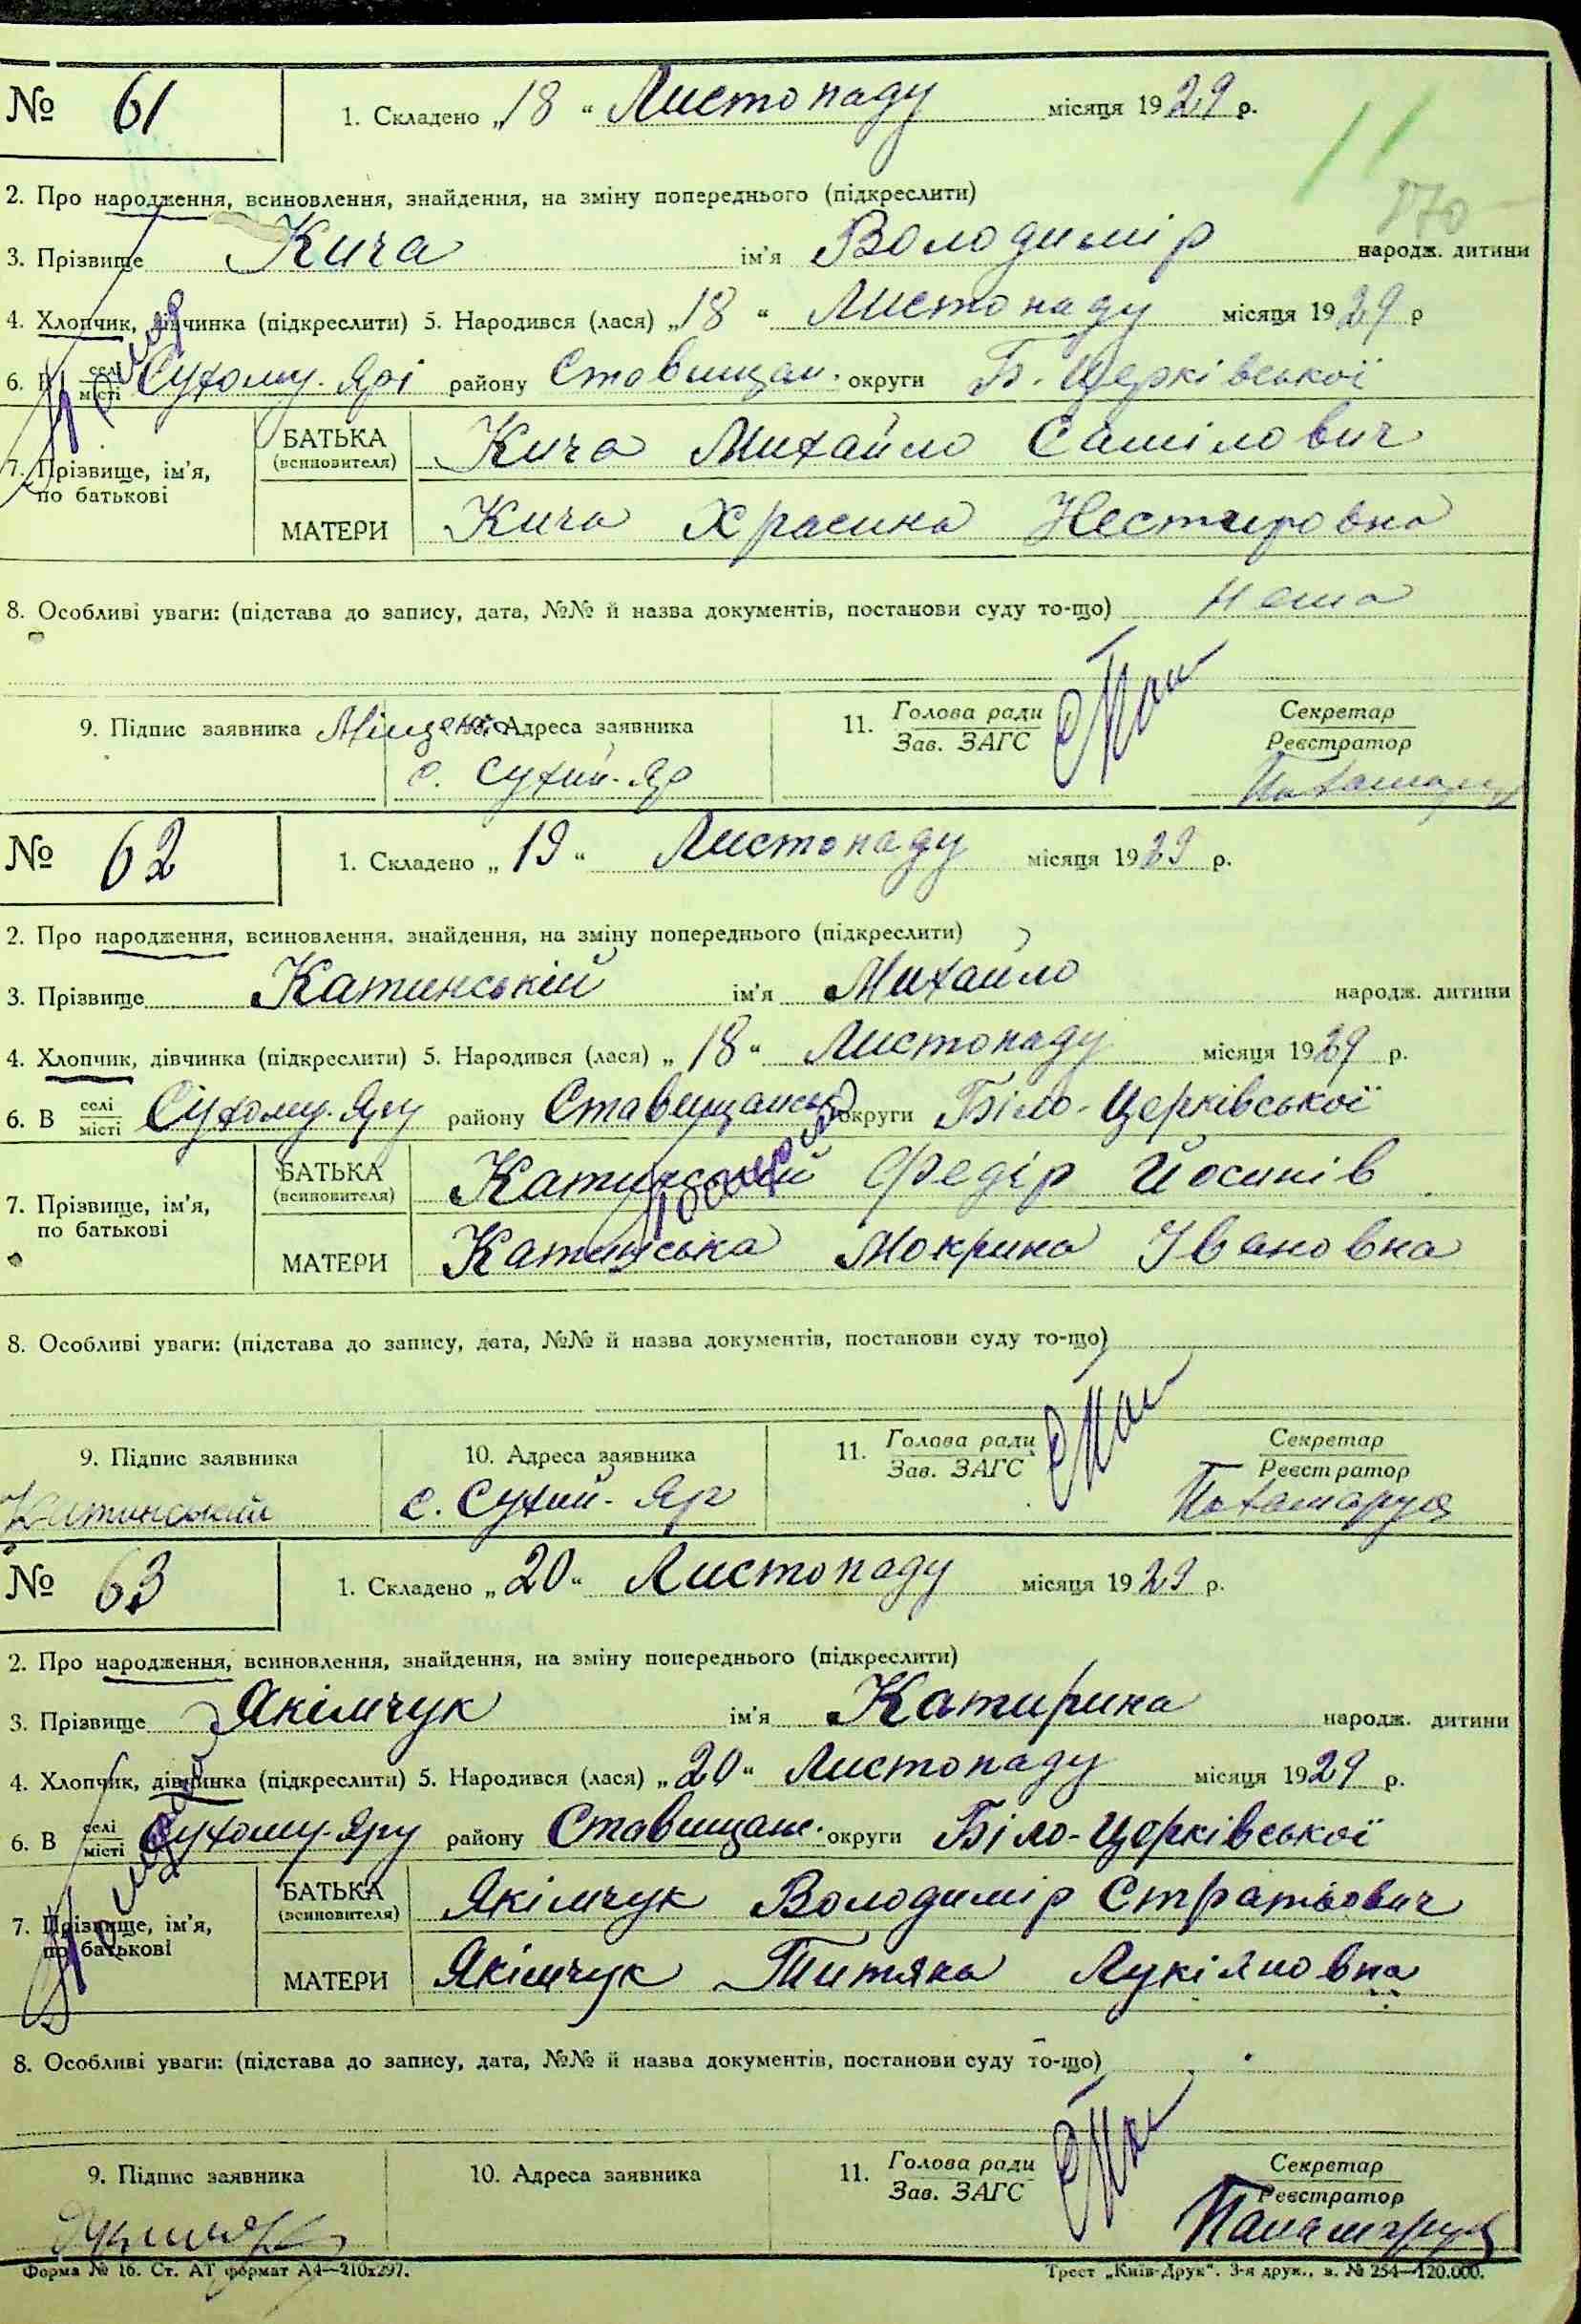 № 61 1. Складено „18“ Листопаду місяця 1929 р.
11
170
2. Про народження, всиновлення, знайдення, на зміну попереднього (підкреслити)
3. Прізвище Кича ім'я Володимір народж. дитини
4. Хлопчик, дівчинка (підкреслити) 5. Народився (лася) „18“ Листопаду місяця 1929 р
6. В селі місті Сухому-Ярі району Ставищан. округи Б. Церківської
7. Прізвище, ім'я, по батькові
БАТЬКА (всиновителя) Кича Михайло Самілович
МАТЕРИ Кича Храсина Нестировна
8. Особливі уваги: (підстава до запису, дата, №№ й назва документів, постанови суду то-що) нема
9. Підпис заявника Адреса заявника 11. Голова ради Зав. ЗАГС Секретар Реєстратор
с. Сухий-Яр
№ 62 1. Складено „19“ Листопаду місяця 1929 р.
2. Про народження, всиновлення, знайдення, на зміну попереднього (підкреслити)
3. Прізвище Катинській ім'я Михайло народж. дитини
4. Хлопчик, дівчинка (підкреслити) 5. Народився (лася) „18“ Листопаду місяця 1929 р.
6. В селі місті Сухому-Яру району Ставищанськ округи Біло-Церківської
7. Прізвище, ім'я, по батькові
БАТЬКА (всиновителя) Катинській Федір Йосипів
МАТЕРИ Катинська Мокрина Івановна
8. Особливі уваги: (підстава до запису, дата, №№ й назва документів, постанови суду то-що)
9. Підпис заявника 10. Адреса заявника 11. Голова ради Зав. ЗАГС Секретар Реєстратор
Катинський с. Сухий-Яр
№ 63 1. Складено „20“ Листопаду місяця 1929 р.
2. Про народження, всиновлення, знайдення, на зміну попереднього (підкреслити)
3. Прізвище Якімчук ім'я Катирина народж. дитини
4. Хлопчик, дівчинка (підкреслити) 5. Народився (лася) „20“ Листопаду місяця 1929 р.
6. В селі місті Сухому-Яру району Ставищанс. округи Біло-Церківської
7. Прізвище, ім'я, по батькові
БАТЬКА (всиновителя) Якімчук Володимір Стратьович
МАТЕРИ Якімчук Титяна Лукіяновна
8. Особливі уваги: (підстава до запису, дата, №№ й назва документів, постанови суду то-що)
9. Підпис заявника 10. Адреса заявника 11. Голова ради Зав. ЗАГС Секретар Реєстратор
Форма № 16. Ст. АТ формат А4—210x297. Трест „Київ-Друк“. 3-я друк., з. № 254—120.000.